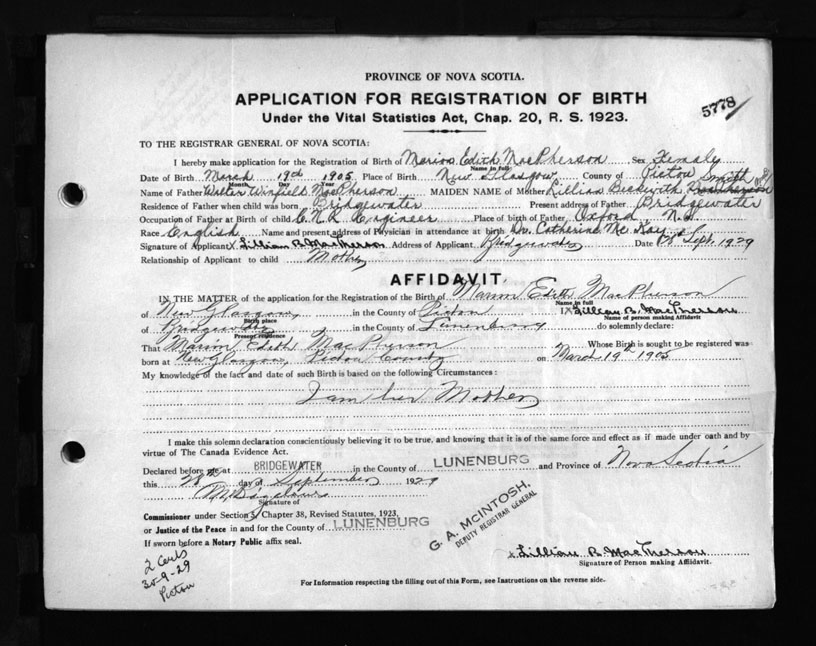 PROVINCE OF NOVA SCOTIA.
APPLICATION FOR REGISTRATION OF BIRTH
5778
Under the Vital Statistics Act, Chap. 20, R. S. 1923.
TO THE REGISTRAR GENERAL OF NOVA SCOTIA:
I hereby make application for the Registration of Birth of Marion Edith MacPherson Sex Female
Date of Birth March 19th 1905 Place of Birth New Glasgow County of Pictou
Month Day Year
Smith
Name of Father Walter Winfield MacPherson MAIDEN NAME of Mother Lillian Beckwith
Residence of Father when child was born Bridgewater Present address of Father Bridgewater
Occupation of Father at Birth of child C.N.R. Engineer Place of birth of Father Oxford, N.S.
Race English Name and present address of Physician in attendance at birth Dr. Catherine McKay
Signature of Applicant x Lillian B. MacPherson Address of Applicant Bridgewater Date 28 Sept. 1929
Relationship of Applicant to child Mother
AFFIDAVIT
IN THE MATTER of the application for the Registration of the Birth of Marion Edith MacPherson
Name in full
of New Glasgow, in the County of Pictou I x Lillian B. MacPherson
Birth place Name of person making Affidavit
of Bridgewater in the County of Lunenburg do solemnly declare:
Present residence
That Marion Edith MacPherson Whose Birth is sought to be registered was
Name in full
born at New Glasgow, Pictou County on March 19th 1905
My knowledge of the fact and date of such Birth is based on the following Circumstances:
I am her Mother
I make this solemn declaration conscientiously believing it to be true, and knowing that it is of the same force and effect as if made under oath and by
virtue of The Canada Evidence Act.
Declared before me at BRIDGEWATER in the County of LUNENBURG and Province of Nova Scotia
this 28th day of September 1929
Signature of
G. A. McINTOSH,
DEPUTY REGISTRAR GENERAL
Commissioner under Section 3, Chapter 38, Revised Statutes, 1923.
or Justice of the Peace in and for the County of LUNENBURG
If sworn before a Notary Public affix seal.
x Lillian B. MacPherson
Signature of Person making Affidavit.
2 Certs
30-9-29
Pictou
For Information respecting the filling out of this Form, see Instructions on the reverse side.